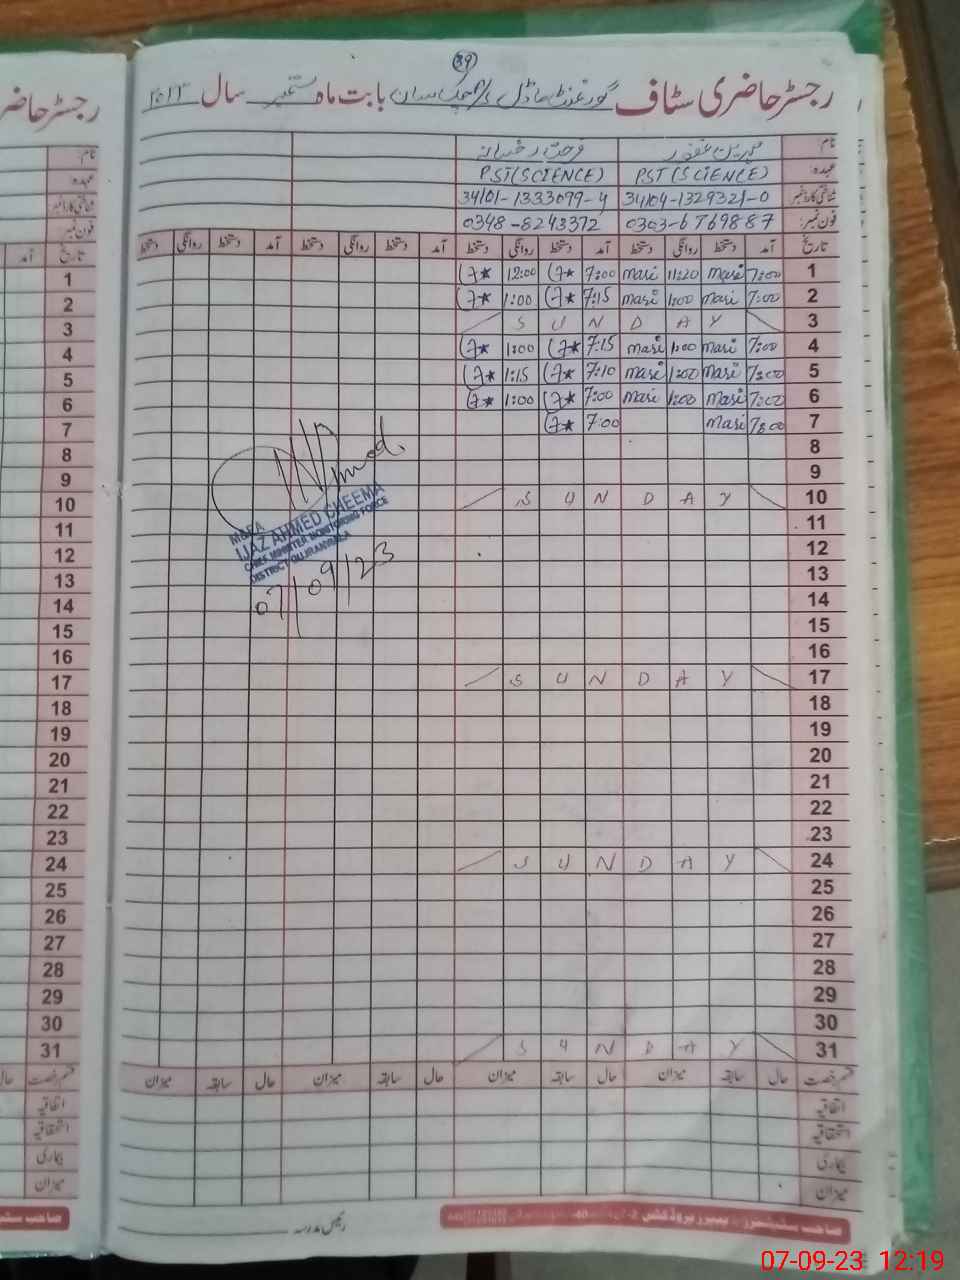 39
رجسٹر حاضری سٹاف گورنمنٹ ماڈل بابت ماہ ستمبر سال ۲۰۲۳
نام:
عہدہ: PST (SCIENCE) PST (SCIENCE)
شناختی کارڈ نمبر 34104-1329321-0 34101-1333099-4
فون نمبر: 0303-6769887 0348-8243372
تاریخ آمد دستخط روانگی دستخط آمد دستخط روانگی دستخط آمد دستخط روانگی دستخط آمد دستخط روانگی دستخط
1 7:00 Masi 11:20 Masi 7:00 12:00
2 7:00 Masi 1:00 Masi 7:15 1:00
3 SUNDAY
4 7:00 Masi 1:00 Masi 7:15 1:00
5 7:00 Masi 1:00 Masi 7:10 1:15
6 7:00 Masi 1:00 Masi 7:00 1:00
7 7:00 Masi 7:00
8
9
10 SUNDAY
11
12
13
14
15
16
17 SUNDAY
18
19
20
21
22
23
24 SUNDAY
25
26
27
28
29
30
31 SUNDAY
M&EA
IJAZ AHMED CHEEMA
CHIEF MINISTER MONITORING FORCE
DISTRICT GUJRANWALA
07/09/23
قسم رخصت حال سابقہ میزان حال سابقہ میزان حال سابقہ میزان حال سابقہ میزان
اتفاقیہ
استحقاقیہ
بیماری
میزان
رئیس مدرسہ
رجسٹر حاضر
نام:
عہدہ:
شناختی کارڈ نمبر
فون نمبر:
تاریخ آمد
1
2
3
4
5
6
7
8
9
10
11
12
13
14
15
16
17
18
19
20
21
22
23
24
25
26
27
28
29
30
31
قسم رخصت حال
اتفاقیہ
استحقاقیہ
بیماری
میزان
07-09-23 12:19